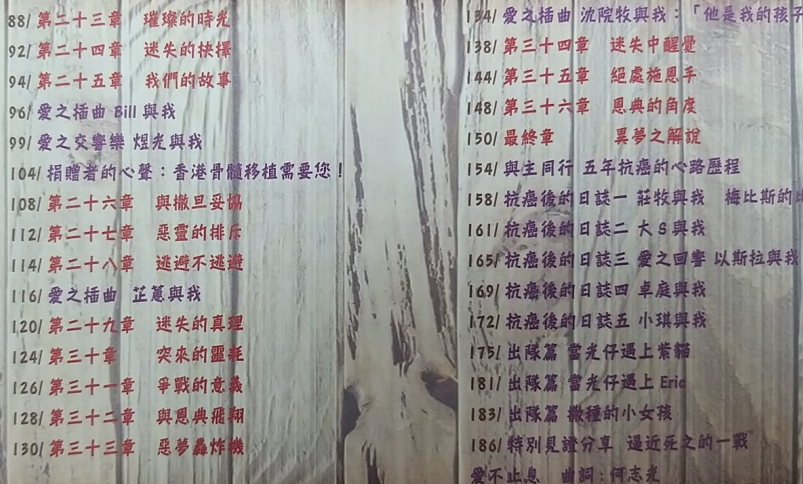 88/ 第二十三章 璀璨的時光
92/ 第二十四章 迷失的抉擇
94/ 第二十五章 我們的故事
96/ 愛之插曲 Bill 與我
99/ 愛之交響樂 煜光與我
104/ 捐贈者的心聲：香港骨髓移植需要您！
108/ 第二十六章 與撒旦妥協
112/ 第二十七章 惡靈的排斥
114/ 第二十八章 逃避不逃避
116/ 愛之插曲 芷蕙與我
120/ 第二十九章 迷失的真理
124/ 第三十章 突來的靈耗
126/ 第三十一章 爭戰的意義
128/ 第三十二章 與恩典飛翔
130/ 第三十三章 惡夢轟炸機
134/ 愛之插曲 沈院牧與我：「他是我的孩子
138/ 第三十四章 迷失中醒覺
144/ 第三十五章 絕處施恩手
148/ 第三十六章 恩典的角度
150/ 最終章 異夢之解說
154/ 與主同行 五年抗癌的心路歷程
158/ 抗癌後的日誌一 莊牧與我 梅比斯的
161/ 抗癌後的日誌二 大S與我
165/ 抗癌後的日誌三 愛之回響 以斯拉與我
169/ 抗癌後的日誌四 卓庭與我
172/ 抗癌後的日誌五 小琪與我
175/ 出隊篇 當光仔遇上紫貓
181/ 出隊篇 當光仔遇上 Eric
183/ 出隊篇 撒種的小女孩
186/ 特別見證分享 逼近死之的一戰
愛不止息 曲詞：何志光